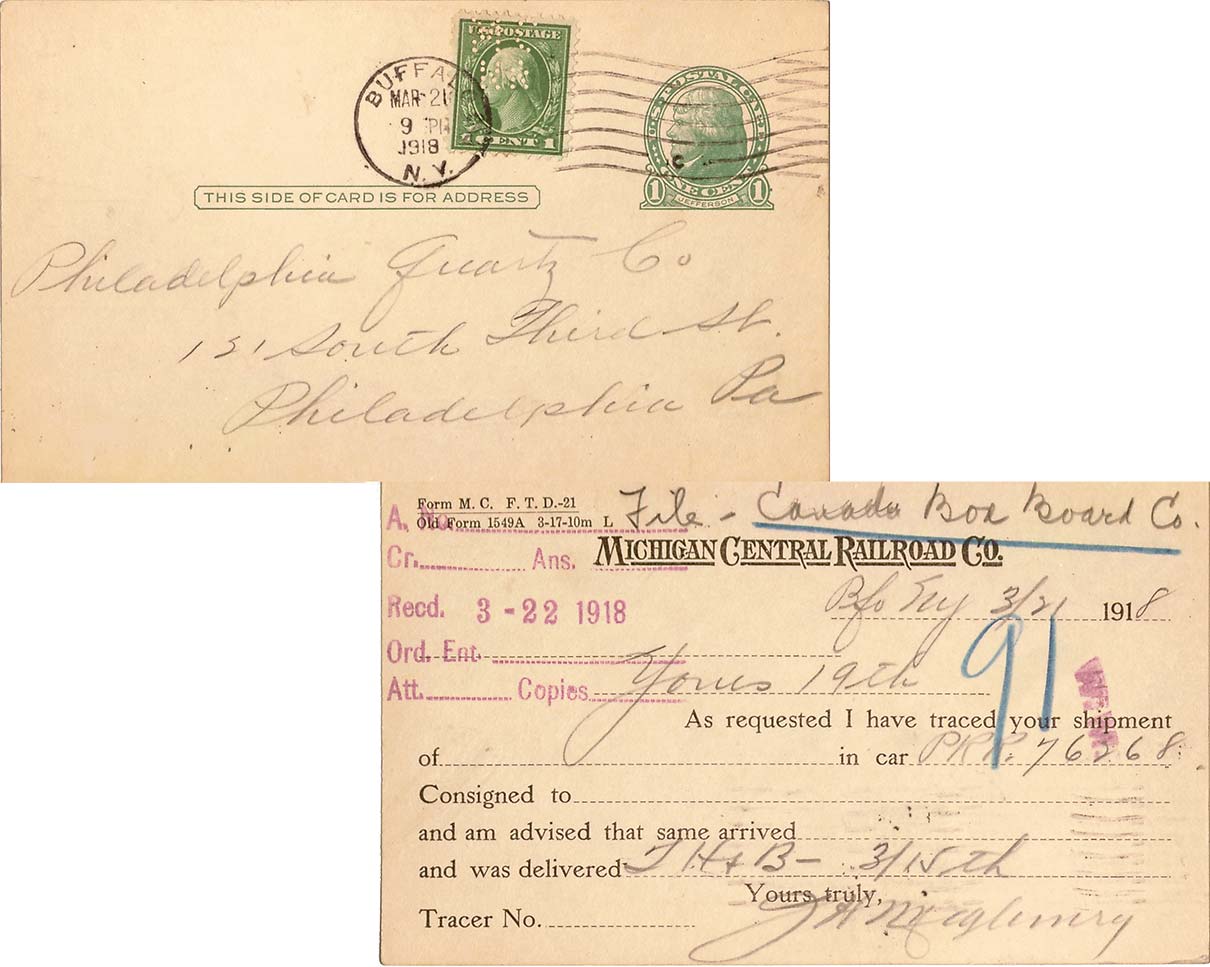 BUFFALO
MAR 21
9 PM
1918
N.Y.
U.S. POSTAGE
1 CENT 1
U.S. POSTAL CARD
1 ONE CENT 1
JEFFERSON
THIS SIDE OF CARD IS FOR ADDRESS
Philadelphia Quartz Co
131 South Third St.
Philadelphia Pa
Form M. C. F. T. D.-21
Old Form 1549A 3-17-10m L
File - Canada Box Board Co.
A. No.
MICHIGAN CENTRAL RAILROAD CO.
Cr. Ans.
Bfo Ny 3/21 1918
Recd. 3-22 1918
91
Ord. Ent.
Yours 19th
Att. Copies
As requested I have traced your shipment
of in car PRR. 76268
Consigned to
and am advised that same arrived
and was delivered T H & B - 3/15th
Yours truly,
Tracer No.